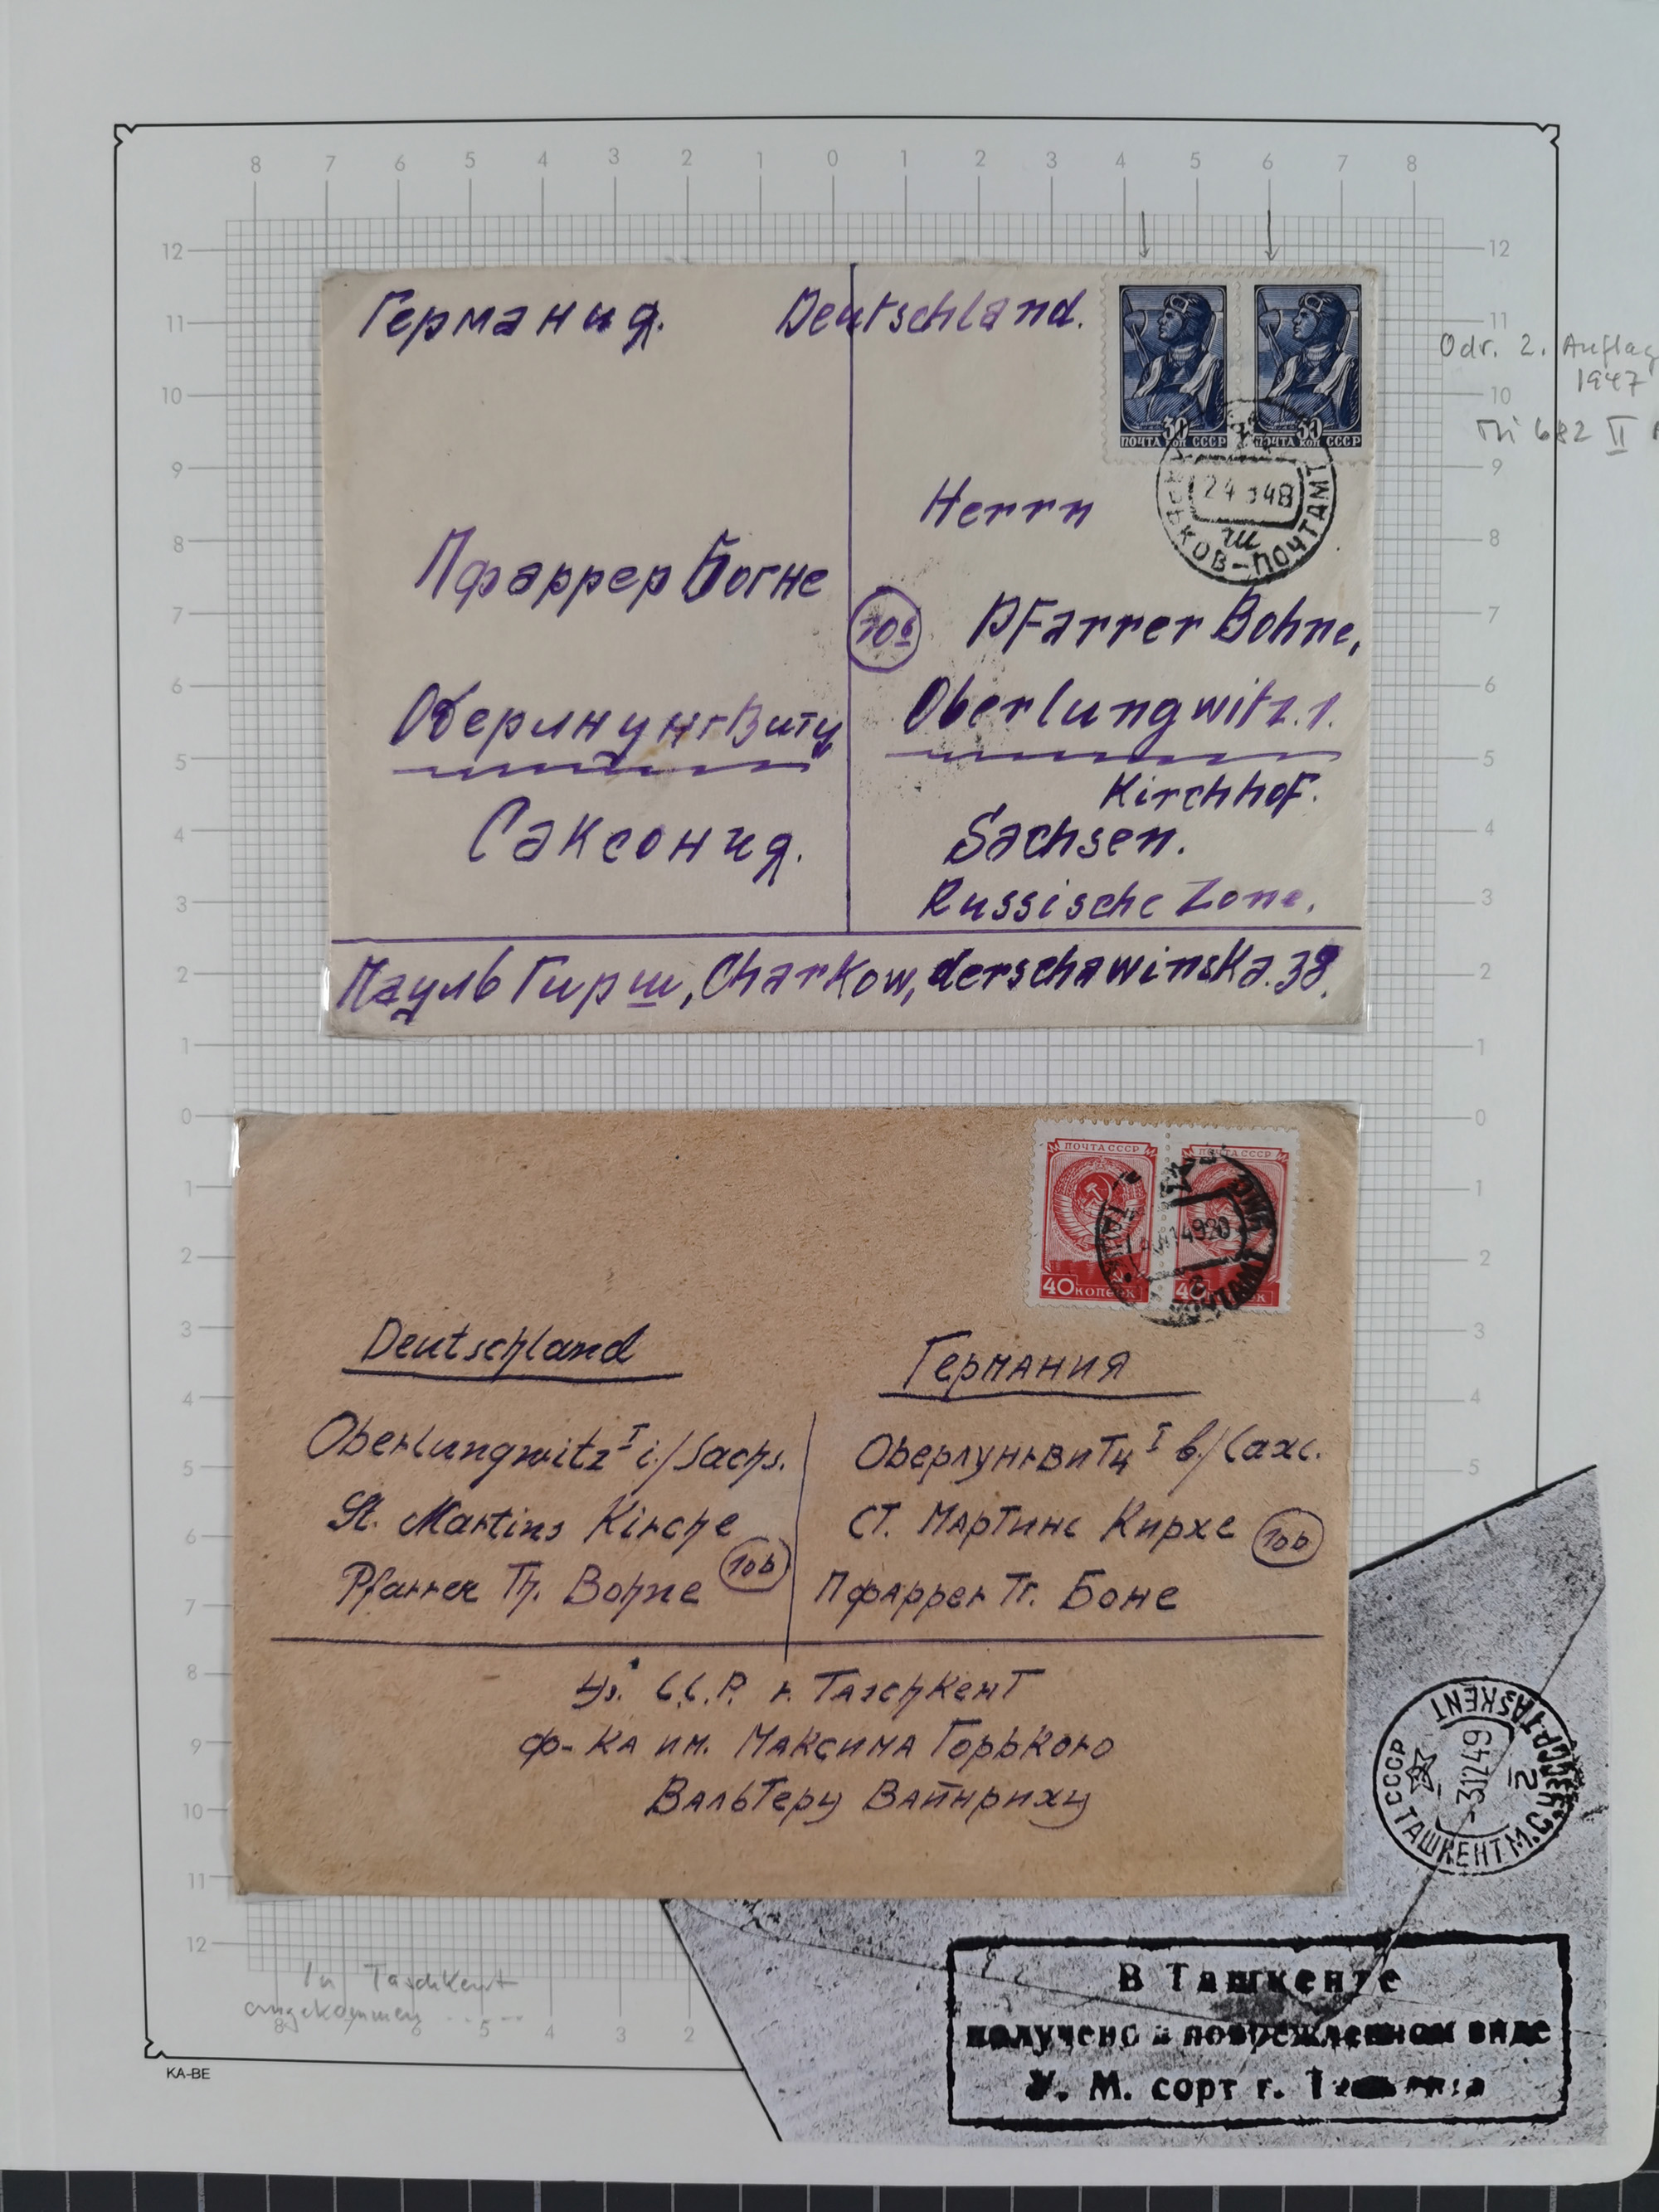 8 7 6 5 4 3 2 1 0 1 2 3 4 5 6 7 8
Германия. Deutschland.
30 30
ПОЧТА КОП СССР ПОЧТА КОП СССР
Odr. 2. Auflag
1947
Mi 682 II
24 348
ЬКОВ-ПОЧТАМТ
ш
Herrn
Пфаррер Богне
10b
Pfarrer Bohne,
Оберлнунгвитц
Oberlungwitz. 1.
Kirchhof.
Саксония.
Sachsen.
Russische Zone.
Пауль Гирш, Charkow, derschawinska. 38.
12 11 10 9 8 7 6 5 4 3 2 1 0 1 2 3 4 5 6 7 8 9 10 11 12
12 11 10 9 8 7 6 5 4 3 2 1 0 1 2 3 4 5
ПОЧТА СССР ПОЧТА СССР
40 КОПЕЕК 40
4920
Deutschland
Германия
Oberlungwitz I i./Sachs.
St. Martins Kirche
Pfarrer Th. Bohne
10b
Оберлунгвитц I в/Сахс.
Ст. Мартинс Кирхе
10b
Пфаррер Тг. Боне
Уз. С.С.Р. г. Ташкент
ф-ка им. Максима Горького
Вальтеру Вайнриху
СССР ТАШКЕНТ
TASKENT
-31249
В Ташкенте
получено в поврежденном виде
У. М. сорт г.
In Taschkent
angekommen .. ...
8 7 6 5 4 3 2
KA-BE